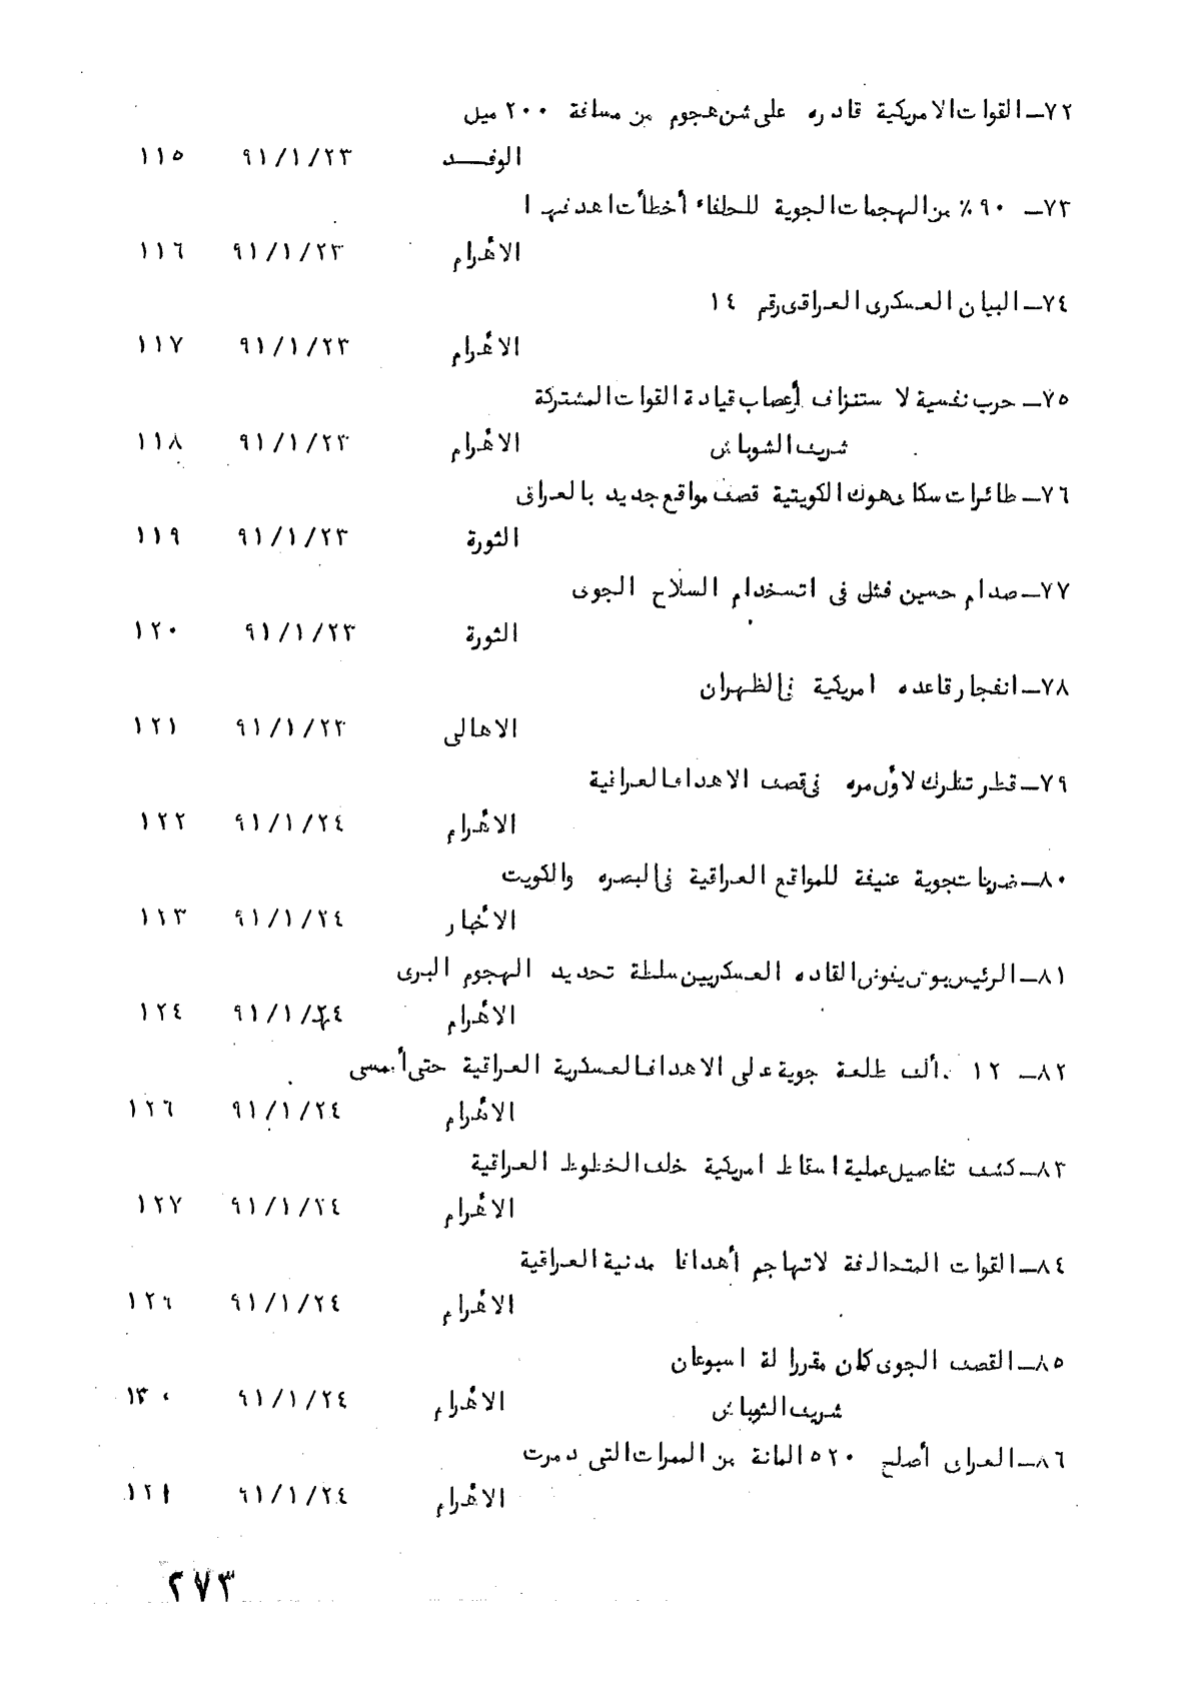 ٧٢ــ القوات الامريكية قادره على شن هجوم من مسافة ٢٠٠ ميل
الوفــد ٩١/١/٢٣ ١١٥
٧٣ــ ٩٠٪ من الهجمات الجوية للحلفاء أخطأت اهدفها
الأهرام ٩١/١/٢٣ ١١٦
٧٤ــ البيان العسكرى العراقى رقم ١٤
الأهرام ٩١/١/٢٣ ١١٧
٧٥ــ حرب نفسية لا ستنزاف أعصاب قيادة القوات المشتركة
شريف الشوباش الأهرام ٩١/١/٢٣ ١١٨
٧٦ــ طائرات سكاى هوك الكويتية قصف مواقع جديد بالعراق
الثورة ٩١/١/٢٣ ١١٩
٧٧ــ صدام حسين فشل فى اتسخدام السلاح الجوى
الثورة ٩١/١/٢٣ ١٢٠
٧٨ــ انفجار قاعده امريكية فى الظهران
الاهالى ٩١/١/٢٣ ١٢١
٧٩ــ قطر تشترك لأول مره فى قصف الاهداف العراقية
الأهرام ٩١/١/٢٤ ١٢٢
٨٠ــ ضربات جوية عنيفة للمواقع العراقية فى البصره والكويت
الأخبار ٩١/١/٢٤ ١٢٣
٨١ــ الرئيس بوش يفوض القاده العسكريين سلطة تحديد الهجوم البرى
الأهرام ٩١/١/٢٤ ١٢٤
٨٢ــ ١٢ ألف طلعة جوية على الاهداف العسكرية العراقية حتى أمسى
الأهرام ٩١/١/٢٤ ١٢٦
٨٣ــ كشف تفاصيل عملية اسقاط امريكية خلف الخطوط العراقية
الأهرام ٩١/١/٢٤ ١٢٧
٨٤ــ القوات المتحالفة لاتهاجم أهدافا مدنية العراقية
الأهرام ٩١/١/٢٤
٨٥ــ القصف الجوى كان مقررا لة اسبوعان
شريف الشوباش الأهرام ٩١/١/٢٤ ١٣٠
٨٦ــ العراق أصلح ٥٢٠ المائة من الممرات التى دمرت
الأهرام ٩١/١/٢٤
٢٧٣